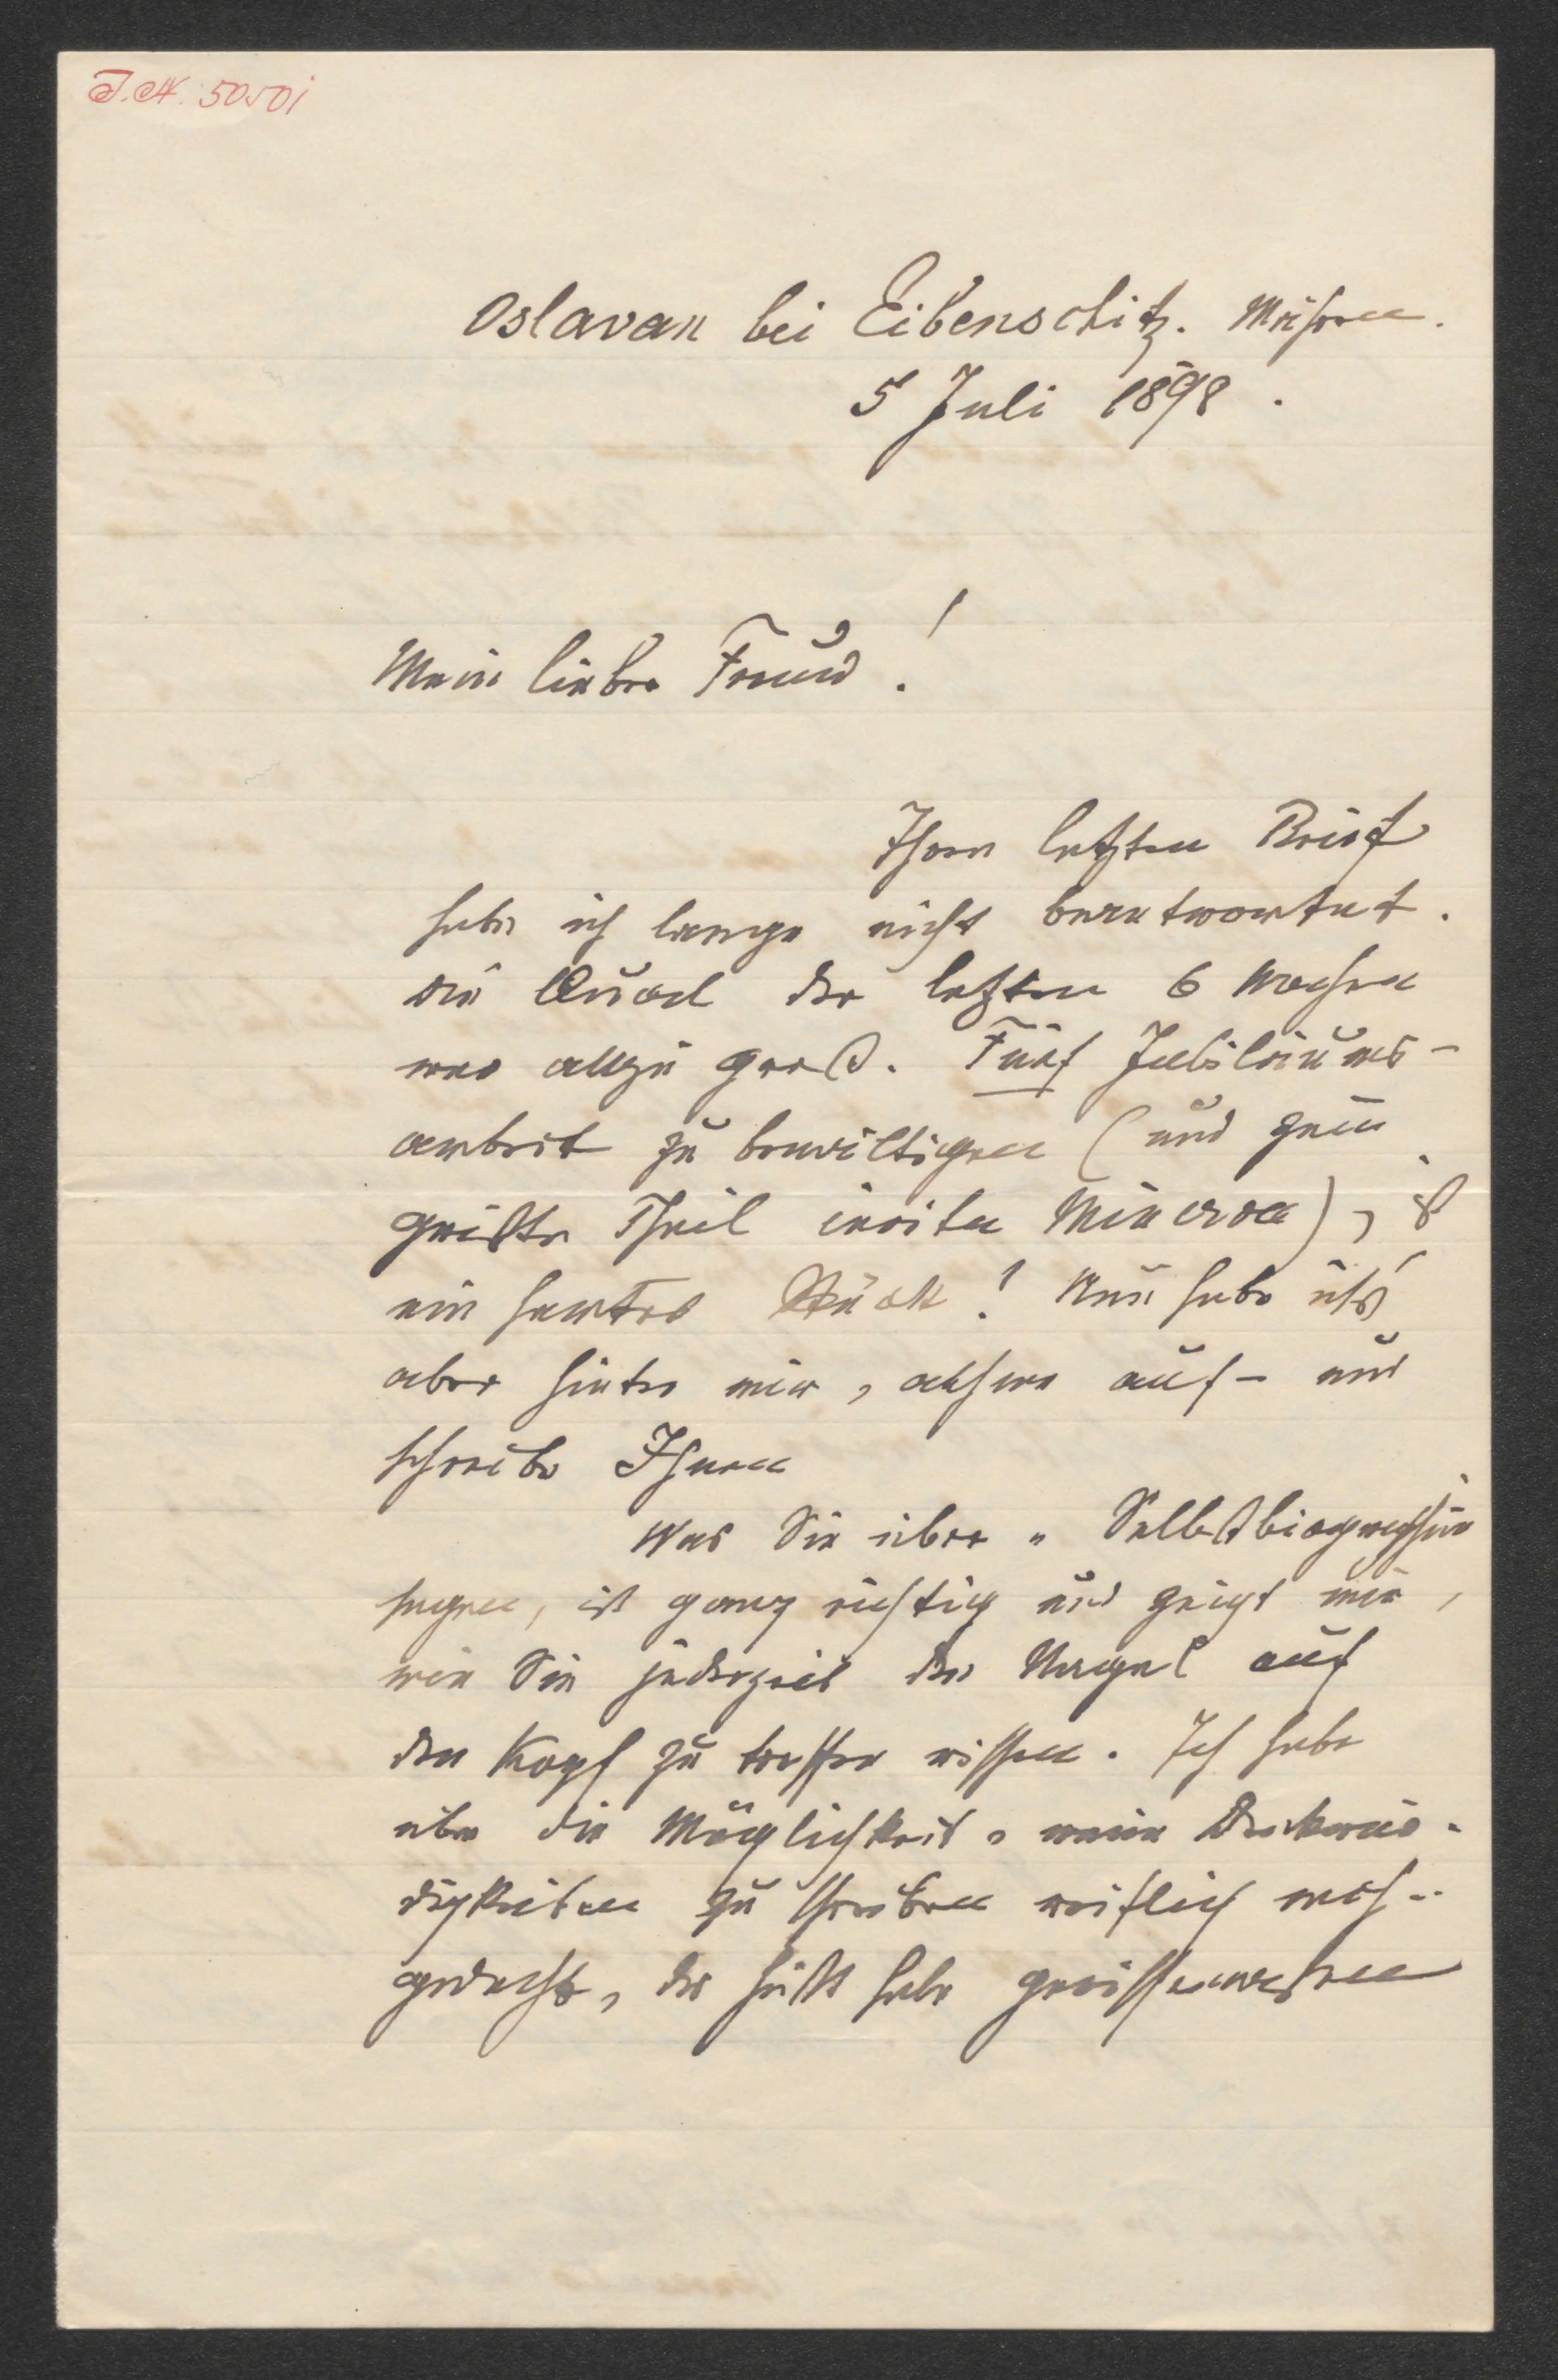 J.N. 50501
Oslavan bei Eibenschitz. Mähren.
5 Juli 1898.
Mein lieber Freund!
Ihren letzten Brief
habe ich lange nicht beantwortet.
Die Qual der letzten 6 Wochen
war allzu groß. Fünf Jubiläums-
arbeit zu bewältigen (und zum
größten Theil invita Minerva), ist
ein hartes Stück! Nun habe ich's
aber hinter mir, athme auf - und
schreibe Ihnen
Was Sie über „Selbstbiographie
sagen, ist ganz richtig und zeigt mir,
wie Sie jederzeit den Nagel auf
den Kopf zu treffen wissen. Ich habe
über die Möglichkeit, meine Denkwür-
digkeiten zu schreiben reiflich nach-
gedacht, das heißt habe gewissermaßen